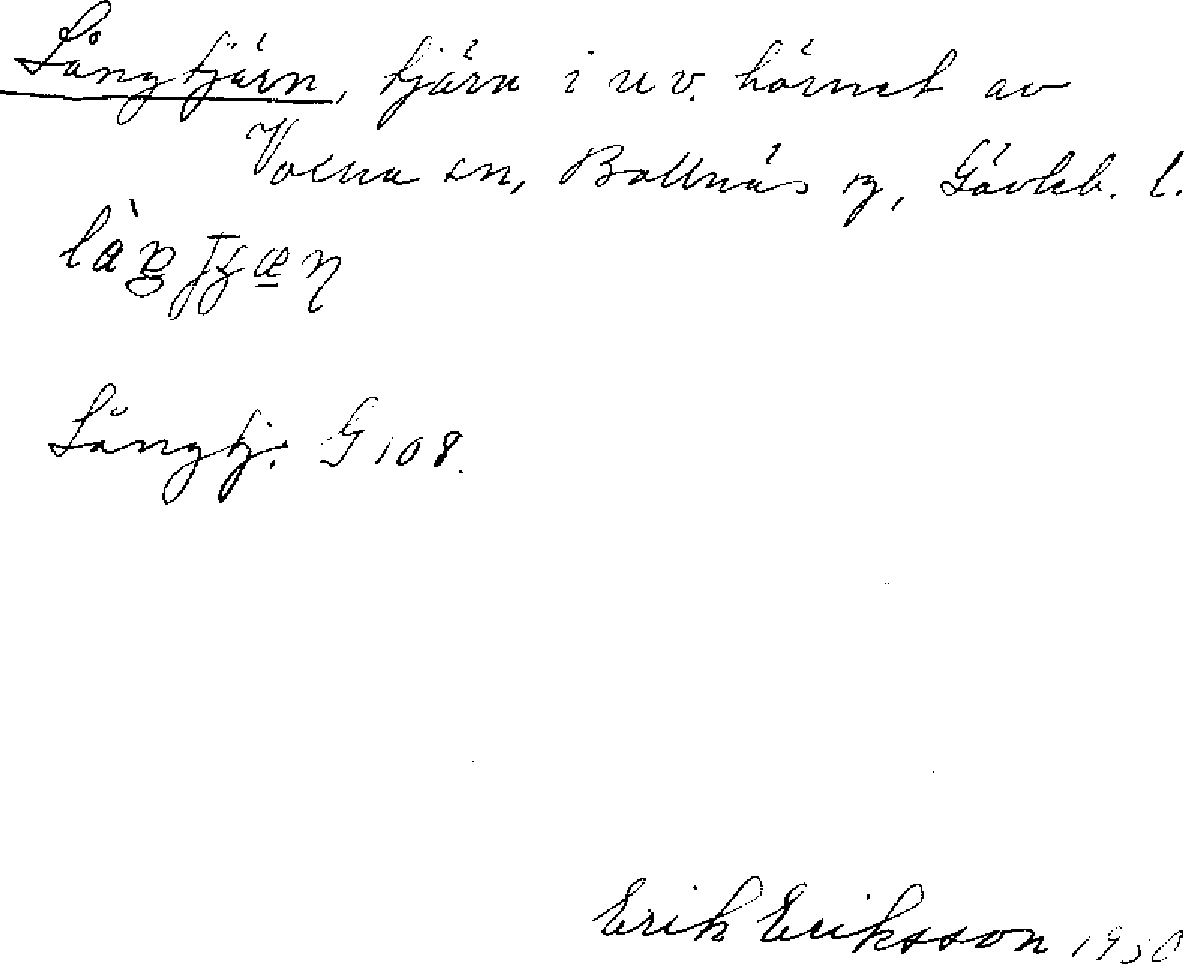 Långtjärn, tjärn i n v. hörnet av
Voxna sn, Bollnäs sg, Gävleb. l.
Långtj. G 108.
Erik Eriksson 1930